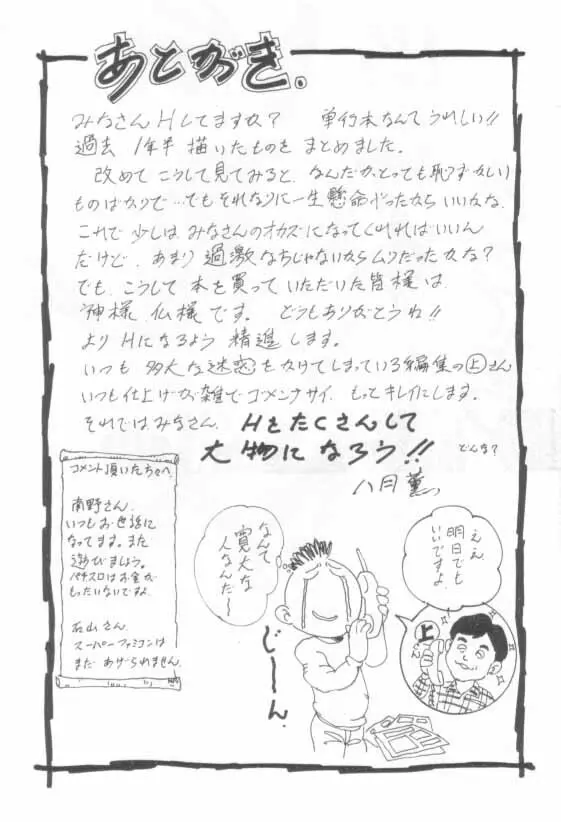 あとがき.
みなさんHしてますか？　単行本なんてうれしい!!
過去 1年半 描いたものを まとめました.
改めて こうして見てみると、なんだか、とっても恥ずかしい
ものばかりで…でもそれなりに一生懸命だったから いいかな.
これで 少しは みなさんのオカズになってくれればいいん
だけど、あまり 過激なちじゃないからムリだったかな？
でも、こうして 本を買って いただいた皆様は、
神様、仏様です。 どうもありがとうね!!
より Hになるよう 精進します.
いつも 多大な迷惑をかけてしまっている編集の上さん
いつも仕上げが雑でゴメンナサイ、もっとキレイにします.
それではみなさん、Hをたくさんして
大物になろう!! どんな？
八月薫
コメント頂いたちゃへ.
南野さん.
いつもお世話に
なってます。また
遊びましょう。
パチスロはお金が
もったいないですよ
石山さん.
スーパーファミコンは
まだ あげられません
なんて
寛大な
人なんだ〜
じ〜ん.
ええ
明日でも
いいですよ
上